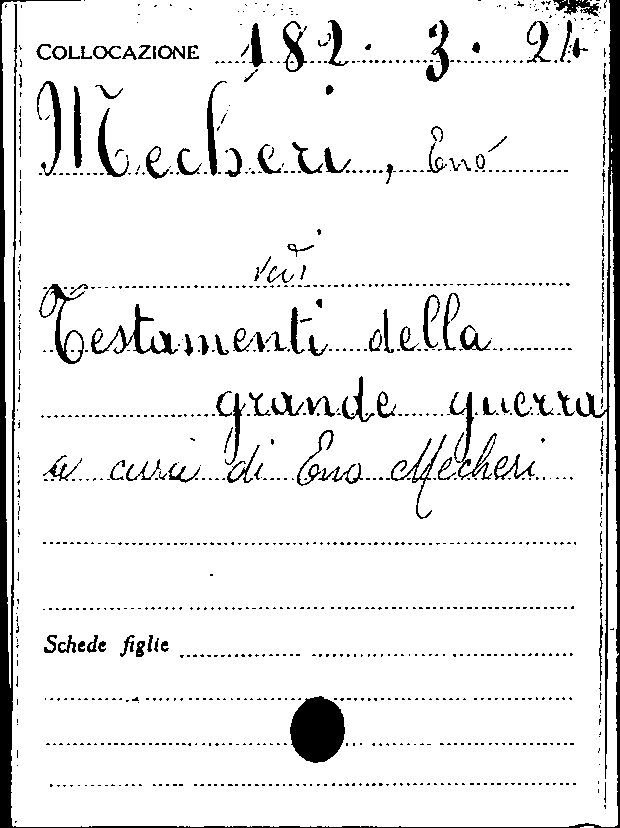 COLLOCAZIONE 182. 3. 24
Mecheri, Eno
vedi
Testamenti della
grande guerra
a cura di Eno Mecheri
Schede figlie